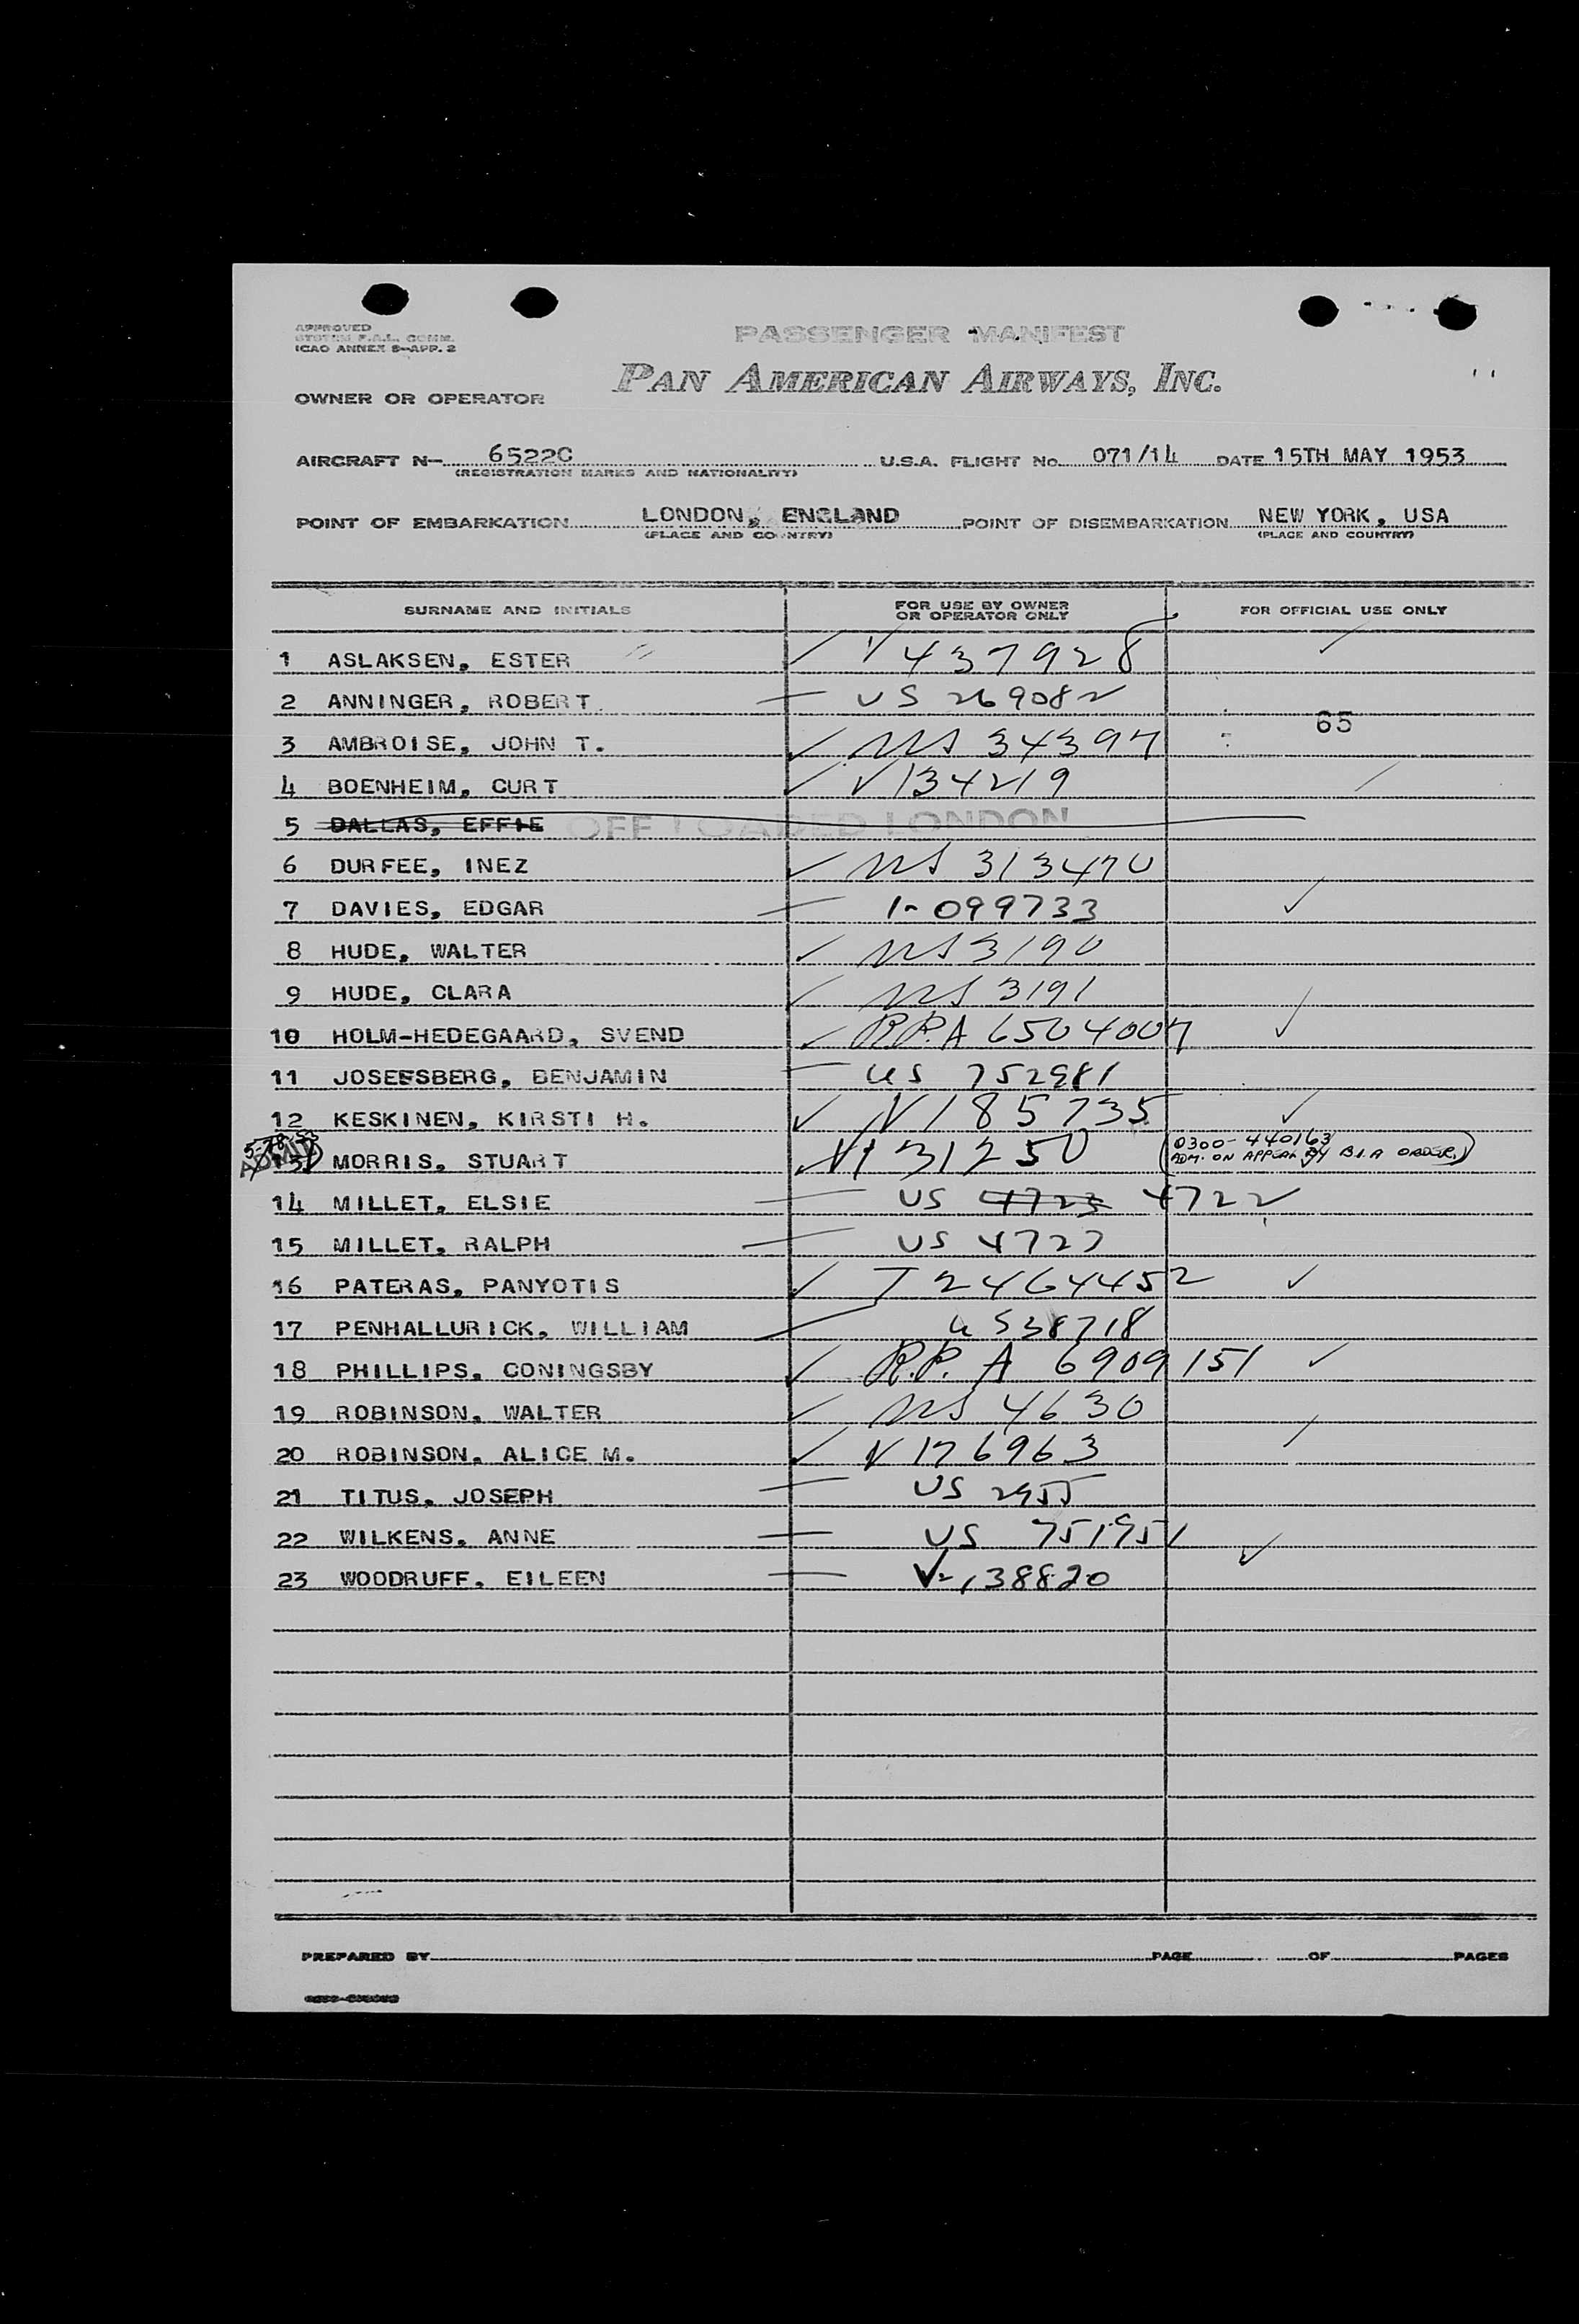 APPROVED
SYSTEM F.A.L. COMM.
ICAO ANNEX 9-APP. 2
PASSENGER MANIFEST
PAN AMERICAN AIRWAYS, INC.
OWNER OR OPERATOR
AIRCRAFT N- 6522C U.S.A. FLIGHT No. 071/14 DATE 15TH MAY 1953
(REGISTRATION MARKS AND NATIONALITY)
POINT OF EMBARKATION LONDON, ENGLAND POINT OF DISEMBARKATION NEW YORK, USA
(PLACE AND COUNTRY) (PLACE AND COUNTRY)
SURNAME AND INITIALS FOR USE BY OWNER OR OPERATOR ONLY FOR OFFICIAL USE ONLY
1 ASLAKSEN, ESTER ✓ V 437928 ✓
2 ANNINGER, ROBERT — US 269082
65
3 AMBROISE, JOHN T. ✓ US 34397
4 BOENHEIM, CURT ✓ V 134219
5 DALLAS, EFFIE OFF LOADED LONDON
6 DURFEE, INEZ ✓ US 313470
7 DAVIES, EDGAR — 1-099733 ✓
8 HUDE, WALTER ✓ US 3190
9 HUDE, CLARA ✓ US 3191
10 HOLM-HEDEGAARD, SVEND ✓ R.P. A 6504007 ✓
11 JOSEFSBERG, BENJAMIN — US 752981
12 KESKINEN, KIRSTI H. ✓ V 185735 ✓
ADMTD 13 MORRIS, STUART ✓ V 131250 (0300-440163
ADM. ON APPEAL BY B.I.A ORDER.)
14 MILLET, ELSIE — US 4723 4722
15 MILLET, RALPH — US 4723
16 PATERAS, PANYOTIS ✓ T 2464452 ✓
17 PENHALLURICK, WILLIAM — US 38718
18 PHILLIPS, CONINGSBY ✓ R.P. A 6909151 ✓
19 ROBINSON, WALTER ✓ US 4630
20 ROBINSON, ALICE M. ✓ V 176963
21 TITUS, JOSEPH — US 2955
22 WILKENS, ANNE — US 751951
23 WOODRUFF, EILEEN — V-138820 ✓
PREPARED BY PAGE OF PAGES